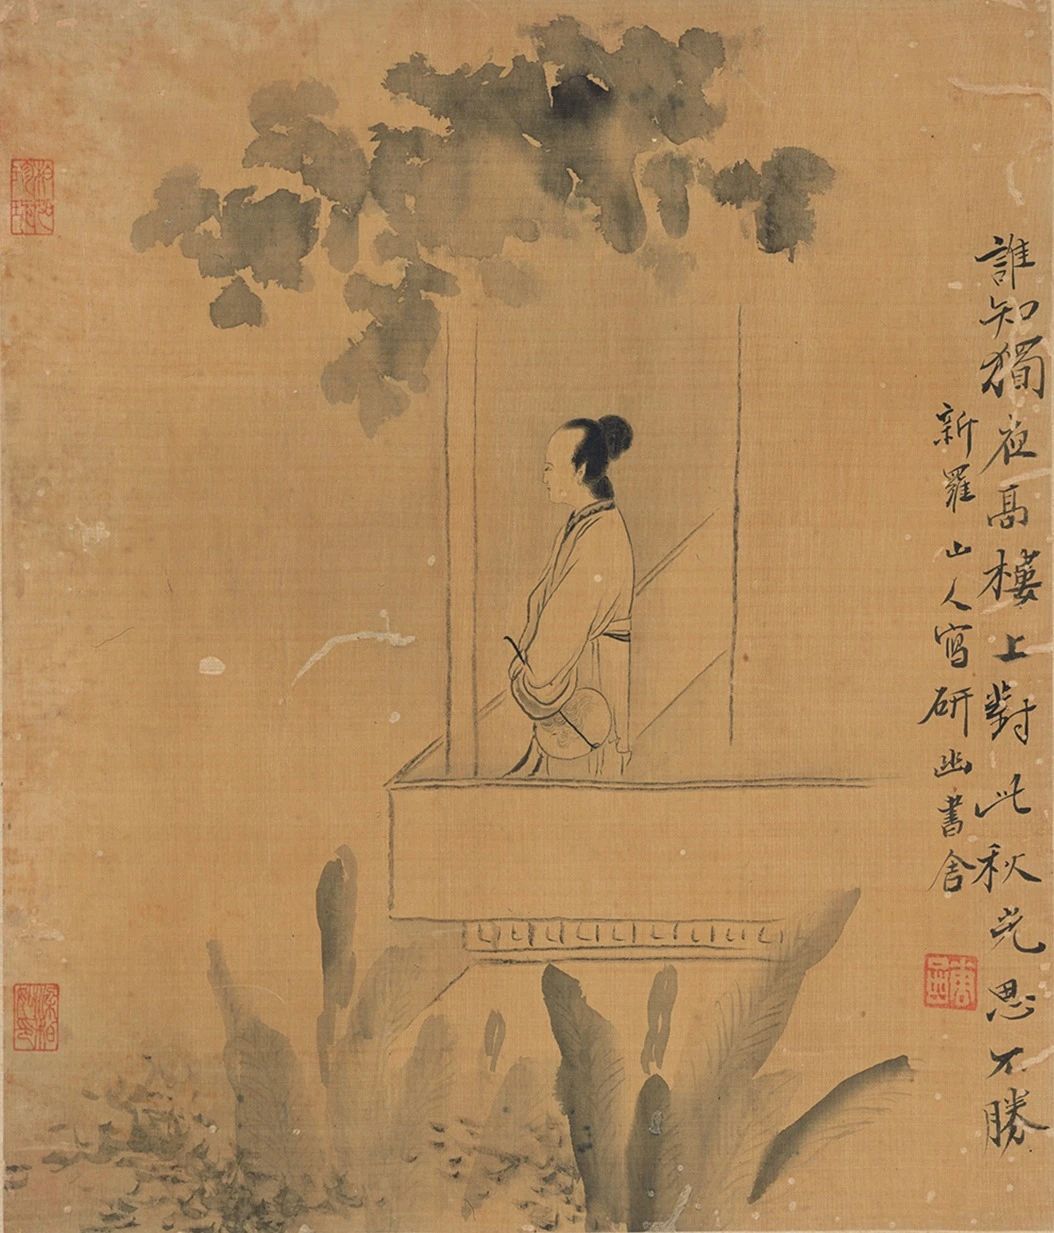 誰知獨夜高樓上對此秋光思不勝
新羅山人寫研幽書舍